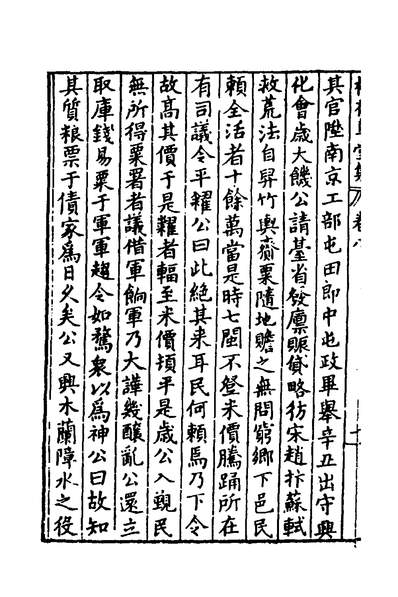 其官陞南京工部屯田郎中屯政畢舉辛丑出守興
化會歲大饑公請臺省發廩賑貸略彷宋趙抃蘇軾
救荒法自舁竹輿齎粟隨地贍之無問窮鄉下邑民
賴全活者十餘萬當是時七閩不登米價騰踊所在
有司議令平糶公曰此絕其來耳民何賴焉乃下令
故高其價于是糶者輻至米價頓平是歲公入覲民
無所得粟署者議借軍餉軍乃大譁幾釀亂公還立
取庫錢易粟于軍軍趨令如騖衆以為神公曰故知
其質粮票于債家為日久矣公又興木蘭障水之役